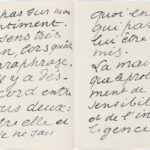 pas sur mon
timent.
sens très
en lorsqu'elle
araphrase.
l y a dés-
cord entre
us deux:
tre elle et
je ne sais
quoi en
qui pas
lui être
mis.
La mau
que le prob
ment de
sensibil
et de l'in
ligence